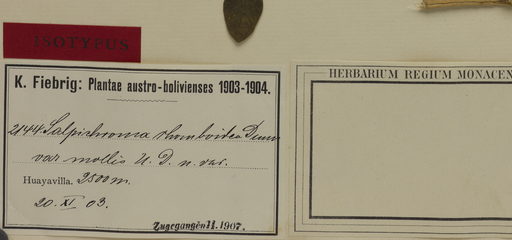 ISOTYPUS
K. Fiebrig: Plantae austro-bolivienses 1903-1904.
2144. Salpichroma rhomboidea Dun
var mollis U. D. n. var.
Huayavilla. 2500 m.
20. XI 03.
Zugegangen 1907.
HERBARIUM REGIUM MONACEN